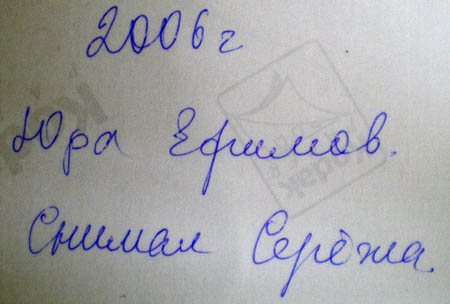 2006г
Юра Ефимов.
Снимал Серёжа.
Kodak